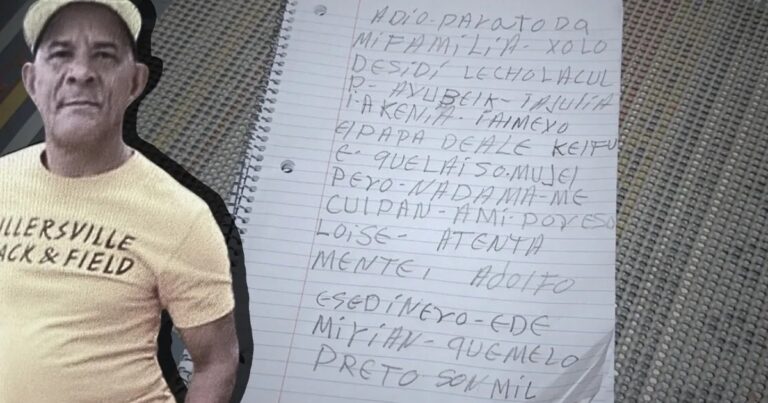 ILLERSVILLE
ACK & FIELD
ADIO-PARATODA
MIFAMILIA-XOLO
DESIDI LECHOLACUL
P-AYUBEIK-TAJULIA
I-AKENIA-IAIMEYO
EIPAPA DEALE KEIFU
E-QUELAISO.MUJEI
PERO-NADAMA-ME
CULPAN-AMI-POVESO
LOISE-ATENTA
MENTE, ADOLFO
ESEDINERO-EDE
MIRIAN-QUEMELO
PRETO SON MIL